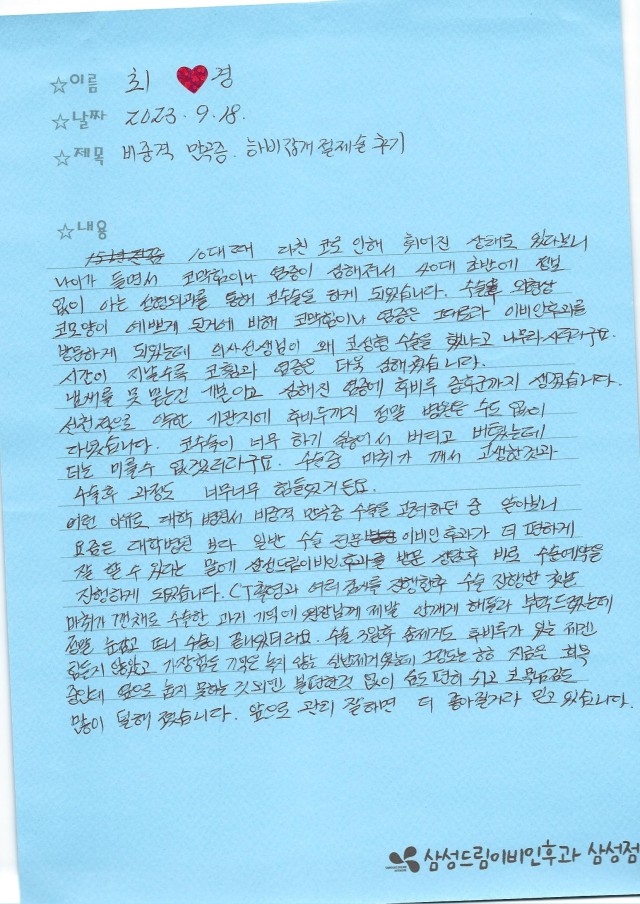 ☆이름 최 ♥ 경
☆날짜 2023. 9. 18.
☆제목 비중격 만곡증. 하비갑개절제술 후기
☆내용
10대 때 다친 코로 인해 휘어진 상태로 있다보니
나이가 들면서 코막힘이나 염증이 심해져서 40대 초반에 겁
없이 아는 성형외과를 통해 코수술을 하게 되었습니다. 수술후 외형상
코모양이 예쁘게 된거에 비해 코막힘이나 염증은 그대로라 이비인후과를
방문하게 되었는데 의사선생님이 왜 코성형 수술을 했냐고 나무라시더라구요.
시간이 지날수록 코막힘과 염증은 더욱 심해졌습니다.
냄새를 못 맡는건 기본이고 심해진 염증에 후비루 증후군까지 생겼습니다.
선천적으로 약한 기관지에 후비루까지 정말 병원은 수도 없이
다녔습니다. 코수술이 너무 하기 싫어서 버티고 버텼는데
더는 미룰수 없겠더라구요. 수술중 마취가 깨서 고생한것과
수술후 과정도 너무너무 힘들었거든요.
이런 이유로 대학 병원서 비중격 만곡증 수술을 고려하던 중 알아보니
요즘은 대학병원 보다 일반 수술 전문 이비인후과가 더 편하게
잘 할 수 있다는 말에 삼성드림이비인후과를 방문 상담후 바로 수술예약을
진행하게 되었습니다. CT촬영과 여러 검사를 진행한후 수술 진행한 것은
마취가 깬채로 수술한 과거 기억에 원장님께 제발 안깨게 해달라 부탁드렸는데
정말 눈감고 뜨니 수술이 끝나있더라요. 수술 3일후 솜제거도 후비루가 있는 제겐
힘들지 않았고 가장힘들 기억은 녹지 않는 실밥제거였는데 그정도는 ㅎㅎ 지금은 회복
중인데 옆으로 눕지 못하는 것 외엔 불편한것 없이 숨도 편히 쉬고 코막힘도
많이 덜해 졌습니다. 앞으로 관리 잘하면 더 좋아질거라 믿고 있습니다.
삼성드림이비인후과 삼성점